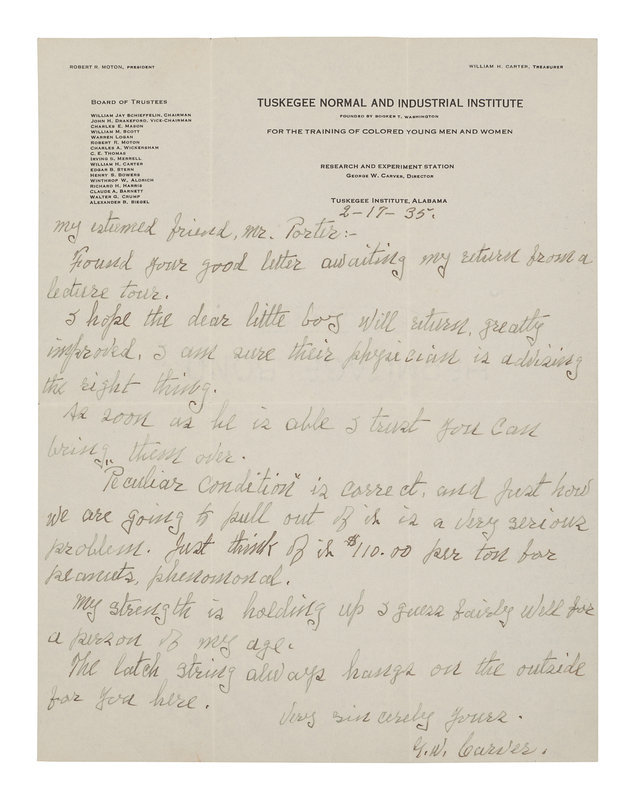 ROBERT R. MOTON, PRESIDENT
WILLIAM H. CARTER, TREASURER
BOARD OF TRUSTEES
WILLIAM JAY SCHIEFFELIN, CHAIRMAN
JOHN H. DRAKEFORD, VICE-CHAIRMAN
CHARLES E. MASON
WILLIAM M. SCOTT
WARREN LOGAN
ROBERT R. MOTON
CHARLES A. WICKERSHAM
C. E. THOMAS
IRVING S. MERRELL
WILLIAM H. CARTER
EDGAR B. STERN
HENRY S. BOWERS
WINTHROP W. ALDRICH
RICHARD H. HARRIS
CLAUDE A. BARNETT
WALTER G. CRUMP
ALEXANDER B. SIEGEL
TUSKEGEE NORMAL AND INDUSTRIAL INSTITUTE
FOUNDED BY BOOKER T. WASHINGTON
FOR THE TRAINING OF COLORED YOUNG MEN AND WOMEN
RESEARCH AND EXPERIMENT STATION
GEORGE W. CARVER, DIRECTOR
TUSKEGEE INSTITUTE, ALABAMA
2-17-35.
My esteemed friend, Mr. Porter:-
Found your good letter awaiting my return from a
lecture tour.
I hope the dear little boy will return, greatly
improved, I am sure their physician is advising
the right thing.
As soon as he is able I trust you can
bring them over.
"Peculiar condition" is correct, and just how
we are going to pull out of it is a very serious
problem. Just think of it $110.00 per ton for
peanuts, phenomonal.
My strength is holding up I guess fairly well for
a person of my age.
The latch string always hangs on the outside
for you here.
Very sincerely yours.
G.W. Carver.